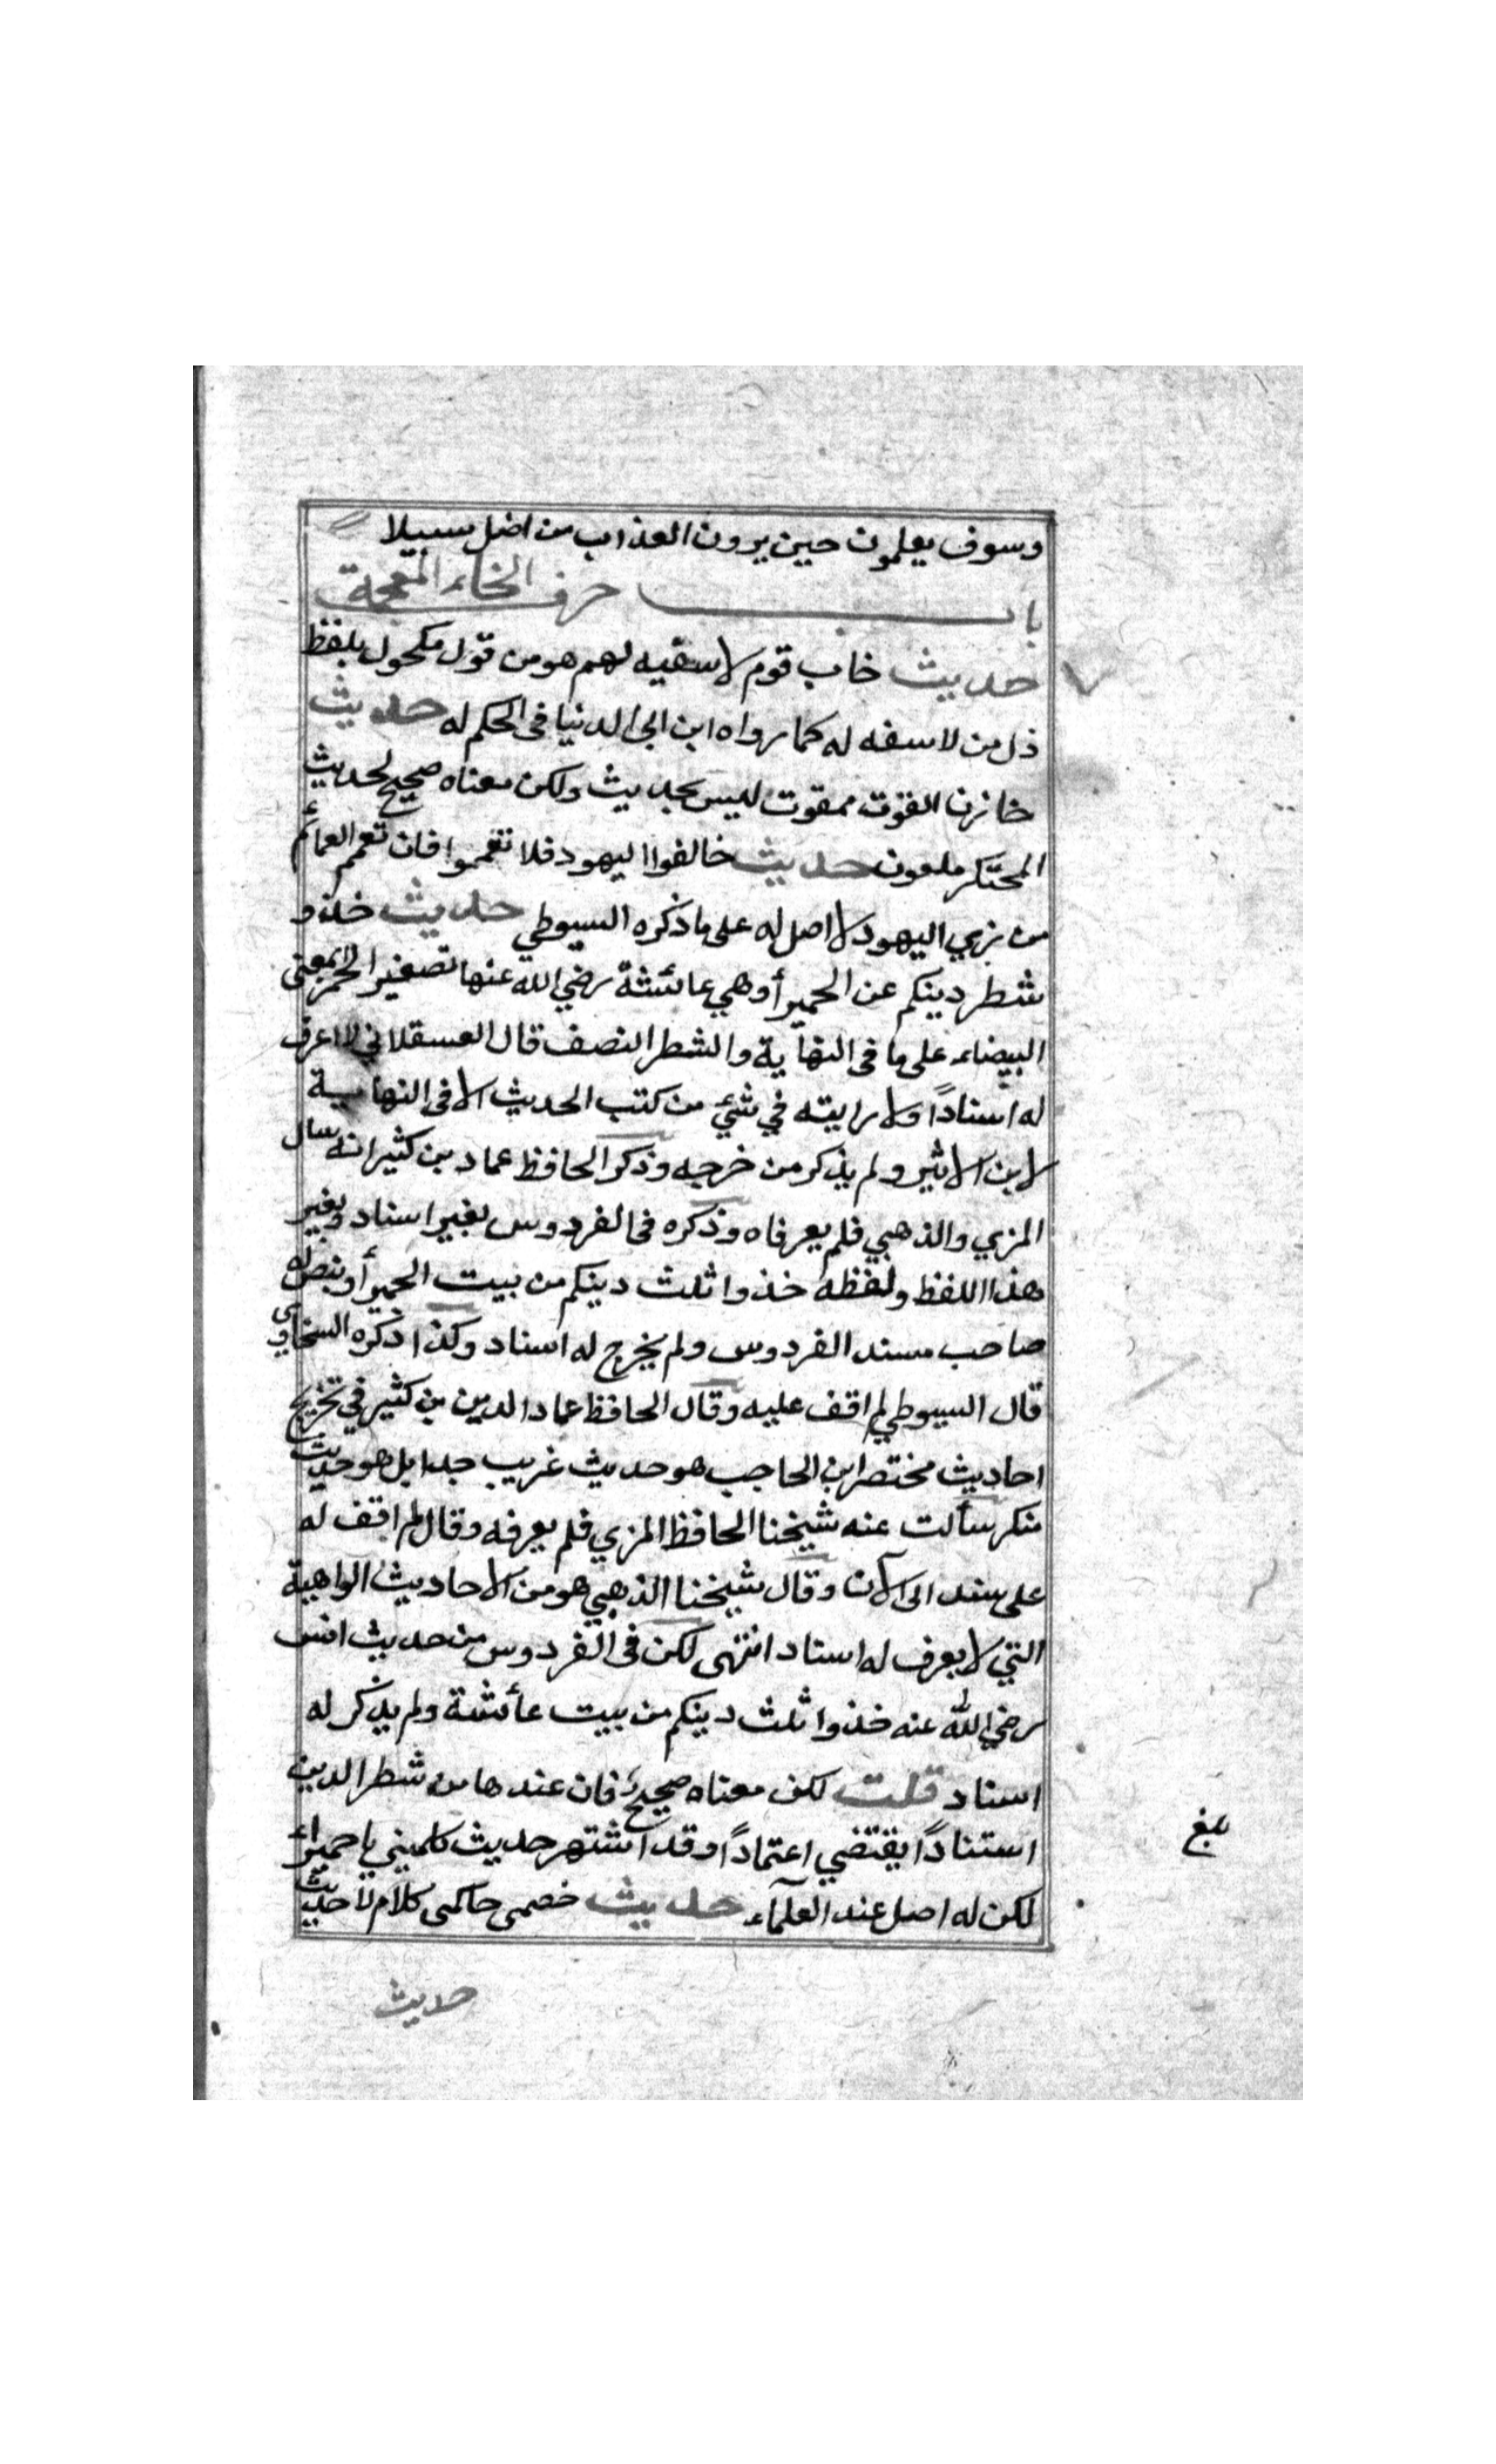 وسوف يعلمون حين يرون العذاب من اضل سبيلا
باب حرف الخاء المعجمة
حديث خاب قوم لا سفيه لهم هو من قول مكحول بلفظ
ذل من لا سفه له كما رواه ابن ابي الدنيا في الحكم له حديث
خازن القوت ممقوت ليس بحديث ولكن معناه صحيح لحديث
المحتكر ملعون حديث خالفوا اليهود فلا تعمموا فان تعمم العمائم
من زي اليهود لا اصل له على ما ذكره السيوطي حديث خذوا
شطر دينكم عن الحميرأ وهي عائشة رضي الله عنها تصغير الحمراء بمعنى
البيضاء على ما في النهاية والشطر النصف قال العسقلاني لا اعرف
له اسنادًا ولا رايته في شئ من كتب الحديث الا في النهاية
لابن الاثير ولم يذكر من خرجه وذكر الحافظ عماد بن كثير انه سال
المزي والذهبي فلم يعرفاه وذكره في الفردوس بغير اسناد وبغير
هذا اللفظ ولفظه خذوا ثلث دينكم من بيت الحميرأ وبيض له
صاحب مسند الفردوس ولم يخرج له اسناد وكذا ذكره السخاوي
قال السيوطي لم اقف عليه وقال الحافظ عماد الدين بن كثير في تخريج
احاديث مختصر ابن الحاجب هو حديث غريب جدا بل هو حديث
منكر سألت عنه شيخنا الحافظ المزي فلم يعرفه وقال لم اقف له
على سند الى الآن وقال شيخنا الذهبي هو من الاحاديث الواهية
التي لا يعرف له اسناد انتهى لكن في الفردوس من حديث انس
رضي الله عنه خذوا ثلث دينكم من بيت عائشة ولم يذكر له
اسناد قلت لكن معناه صحيح فان عندها من شطر الدين
استنادًا يقتضي اعتمادًا وقد اشتهر حديث كلميني يا حميراء
لكن له اصل عند العلمآء حديث خصمي حاكمي كلام لا حديث
بلغ
حديث